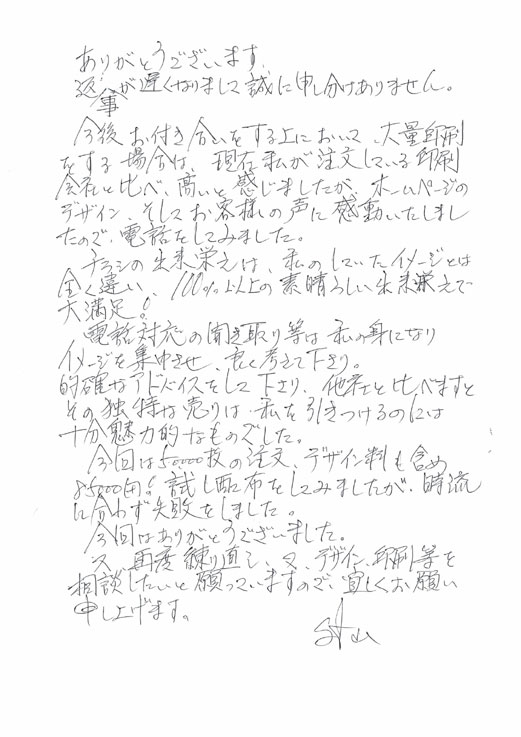 ありがとうございます。
返事が遅くなりまして誠に申し分けありません。
今後お付き合いをする上において、大量印刷
をする場合は、現在私が注文している印刷
会社と比べ、高いと感じましたが、ホームページの
デザイン、そしてお客様の声に感動いたしまし
たので、電話をしてみました。
チラシの出来栄えは、私のしていたイメージとは
全く違い、100%以上の素晴らしい出来栄えで
大満足!
電話対応の聞き取り等は私の身になり
イメージを集中させ、良く考えて下さり。
的確なアドバイスをして下さり、他社と比べますと
その独特な売りは、私を引きつけるのには
十分魅力的なものでした。
今回は50000枚の注文、デザイン料も含め
85000円!試し配布をしてみましたが、時流
に合わず失敗をしました。
今回はありがとうございました。
又、再度練り直し、又、デザイン、印刷等を
相談したいと願っていますので、宜しくお願い
申し上げます。